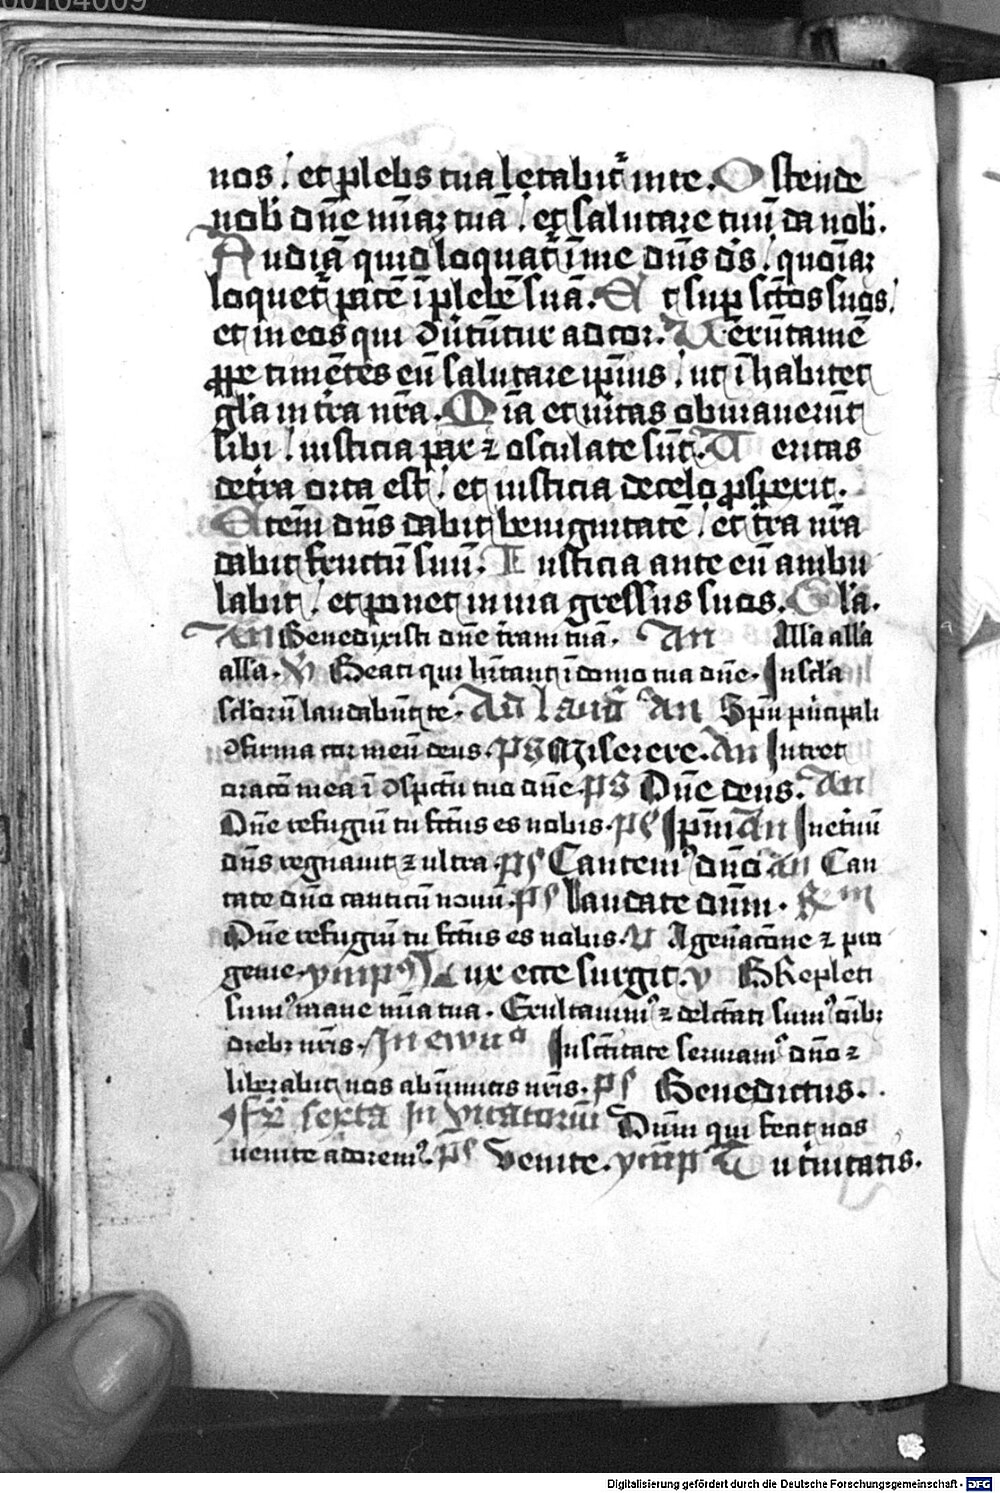 00104009
nos / et plebs tua letabit̾ in te. Ostende
nob̾ dn̄e mīaꝫ tuā / et salutare tuū da nob̾.
Audiā quid loquat̾ ī me dn̄s ds̄ / quoīaꝫ
loquet̾ pacē ī plebē suā. Et sup sc̄tos suos /
et in eos qui ꝯūtūtur ad cor. Verūtamē
ꝓpe timētes eū salutare ip̄ius / ut īhabitet
gl̄a in tr̄a nr̄a. Mīa et u̾itas obuiauerūt
sibi / iusticia pax ⁊ osculate sūt. Ueritas
de tr̄a orta est / et iusticia de celo ꝓspexit.
Eteīm dn̄s dabit benignitatē / et tr̄a nr̄a
dabit fructū suū. Iusticia ante eū ambu
labit / et ponet in uia gressus suos. Gl̄a.
An Benedixisti dn̄e t̄ram tuā. An All̄a all̄a
all̄a. V Beati qui hītant ī domo tua dn̄e. In scl̄a
scl̄orū laudabūt te. Ad laud̾ An Spū pn̄cipali
ꝯfirma cor meū deus. ps Miserere. An Intret
oracō mea ī ꝯspectu tuo dn̄e. ps Dn̄e deus. An
Dn̄e refugiū tu fctūs es nobis. ps Ip̄m An Inet̾nū
dn̄s regnauit ⁊ ultra. ps Cantemꝰ dn̄o An Can
tate dn̄o canticū nouū. ps Laudate dnūm.
Dn̄e refugiū tu fctūs es nobis. V A gen̄acōne ⁊ pro
genie. ympꝰ Lux ecce surgit. v Repleti
sumꝰ mane mīa tua. Exultauimꝰ ⁊ delc̄tati sumꝰ oībꝫ
diebꝫ nr̄is. In ewuᵃ In sctītate seruiamꝰ dn̄o ⁊
liberabit nos ab inimicis nr̄is. ps Benedictus.
fr̄ sexta in Vitatoriū Dnūm qui fecit nos
uenite adoremꝰ. ps Venite. ymp Tu t̾initatis.
Digitalisierung gefördert durch die Deutsche Forschungsgemeinschaft - DFG